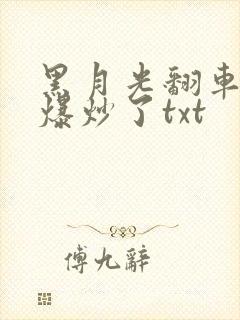 黑月光翻車
爆炒了txt
傅九辭